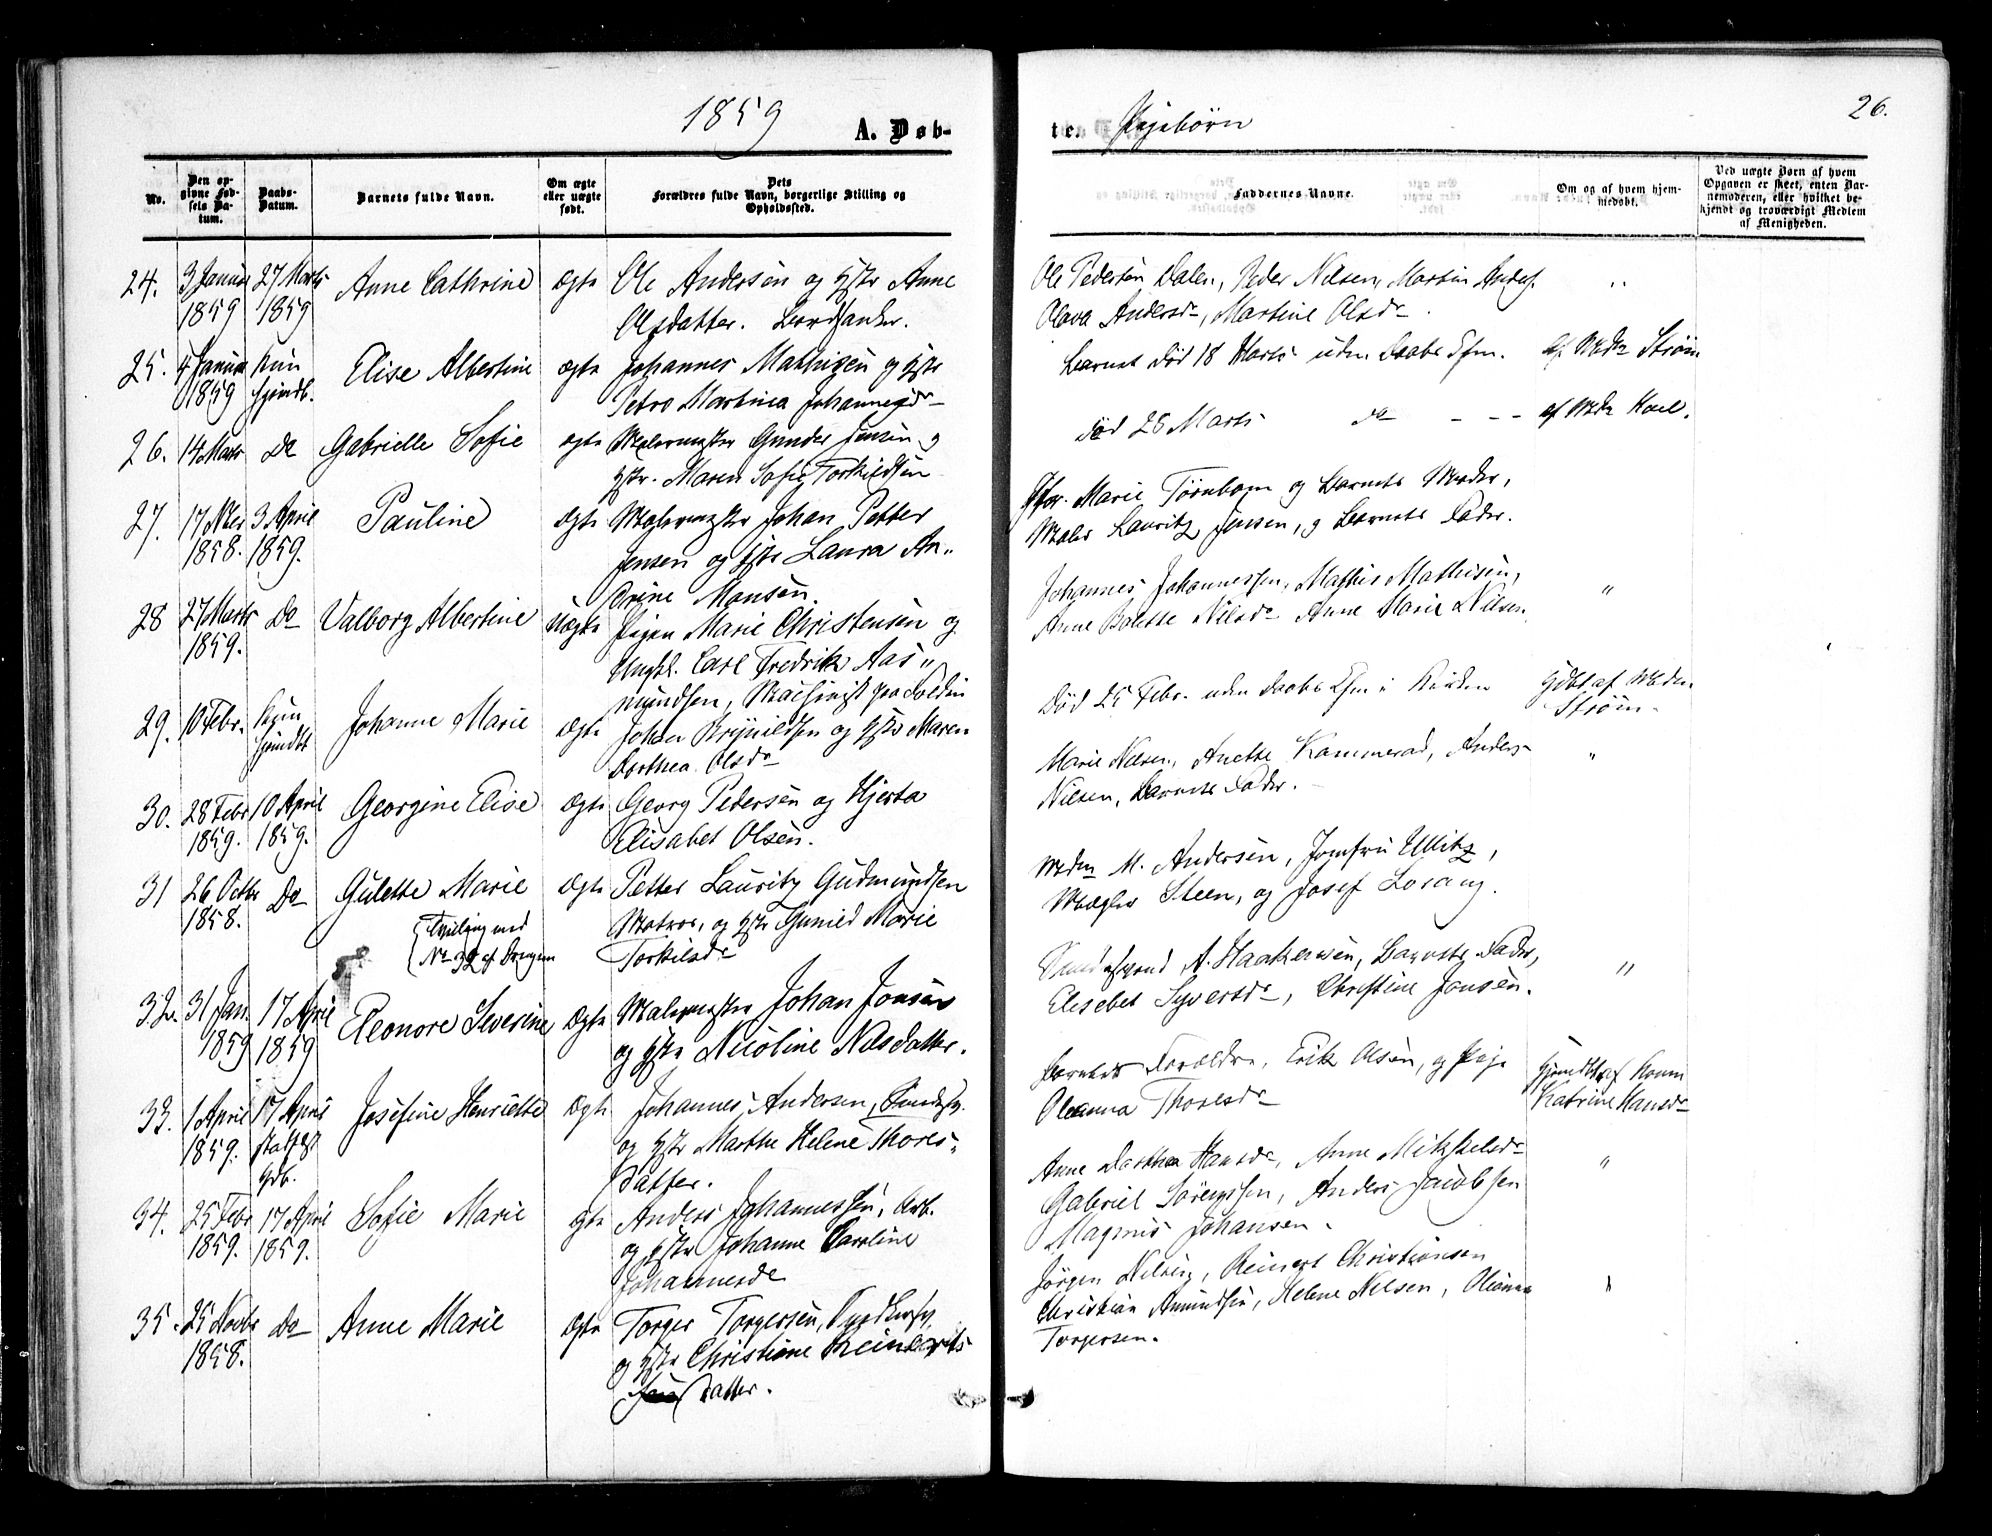 1859
A. Døb-
No.
Den op-
givne Fød-
sels Da-
tum.
Daabs-
Datum.
Barnets fulde Navn.
Om ægte
eller uægte
født.
Dets
Forældres fulde Navn, borgerlige Stilling og
Opholdssted.
24. 3 Januar 27 Marts Anne Cathrine ægte Ole Andersen og Hstr Anne
1859 1859 Olsdatter.
25. 4 Januar kun Elise Albertine ægte Johannes Mathisen og Hstr
1859 hjemdb. Petro Martinea Johannesdr
26. 14 Marts Do Gabrielle Sofie ægte Malermester Gunder Jensen og
Hstr. Maren Sofie Torkildsen
27. 17 Nber 3 April Pauline ægte Malermester Johan Petter
1858. 1859. Jensen og Hstr Laura An„
drine Monsen.
28 27 Marts Do Valborg Albertine Uægte Pigen Marie Christensen og
1859. Ungkl. Carl Fredrik Aas„
mundsen,
29. 10 Febr. Johanne Marie ægte Johan Brynildsen og Hstr Maren
Dorthea Olsdr
30. 28 Febr 10 April Georgine Elise ægte Georg Pedersen og Hjerta
1859. 1859. Elisabet Olsen.
31 26 Octbr Do Gulette Marie ægte Petter Lauritz Gudmundsen
1858. Matros, og Hstr Gunild Marie
Tvilling med
No 32 af Drengene
Torkilsdr
32. 31 Jan. 17 April Eleonore Severine ægte Malermester Johan Jonsen
1859 1859 og Hstr Nicoline Nilsdatter.
33. 1 April 17 April Josefine Henriette ægte Johannes Andersen,
1859. og Hstr Marthe Helene Thores„
datter.
34. 25 Febr 17 April Sofie Marie ægte Anders Johannessen, Arb.
1859. 1859. og Hstr Johanne Caroline
Johannesdr
35. 25 Novbr Do Anne Marie ægte Torger Torgersen,
1858. og Hstr Christiane Reinerts
datter.
te. Pigebørn
26.
Faddernes Navne.
Om og af hvem hjem-
medøbt.
Ved uægte Børn af hvem
Opgaven er skeet, enten Bar-
nemoderen, eller hvilket be-
kjendt og troværdigt Medlem
af Menigheden.
Ole Pedersen Dalen, Peder Nilsen, Martin Anders.
Olava Andersdr, Martine Olsdr
Barnet død 18 Marts uden Daabs Efm. af Mdm Strøm
død 26 Marts do - - - af Mdm Hoel.
Jfr. Marie Tørnborn og Barnets Moder,
Maler Lauritz Jensen, og Barnets Fader.
Johannes Johannessen, Mathis Mathisen, „
Anne Bolette Nilsdr Anne Marie Nilsen.
Død 25 Febr. uden Daabs Efm i Kirken Hjdbt af Mdm.
Strøm.
Marie Nilsen, Anette Kammerad, Anders „
Nilsen, Barnets Fader.
Mdm M. Andersen, Jomfru Ullitz,
Mægler Steen, og Josef Lorang.
A. Haakensen, Barnets Fader, „
Elisebet Syversdr, Christine Jonsen.
Barnets Forældre, Erik Olsen, og Pige Hjemdbt af Konen
Oleanna Thoresdr Katrine Hansdr
Anne Dorthea Hansdr, Anne Mikkelsdr „
Gabriel Sørensen, Anders Jacobsen
Magnus Johansen.
Jörgen Nilsen, Reinert Christiansen
Christian Amundsen, Helene Nilsen, Oleanna „
Torgersen.